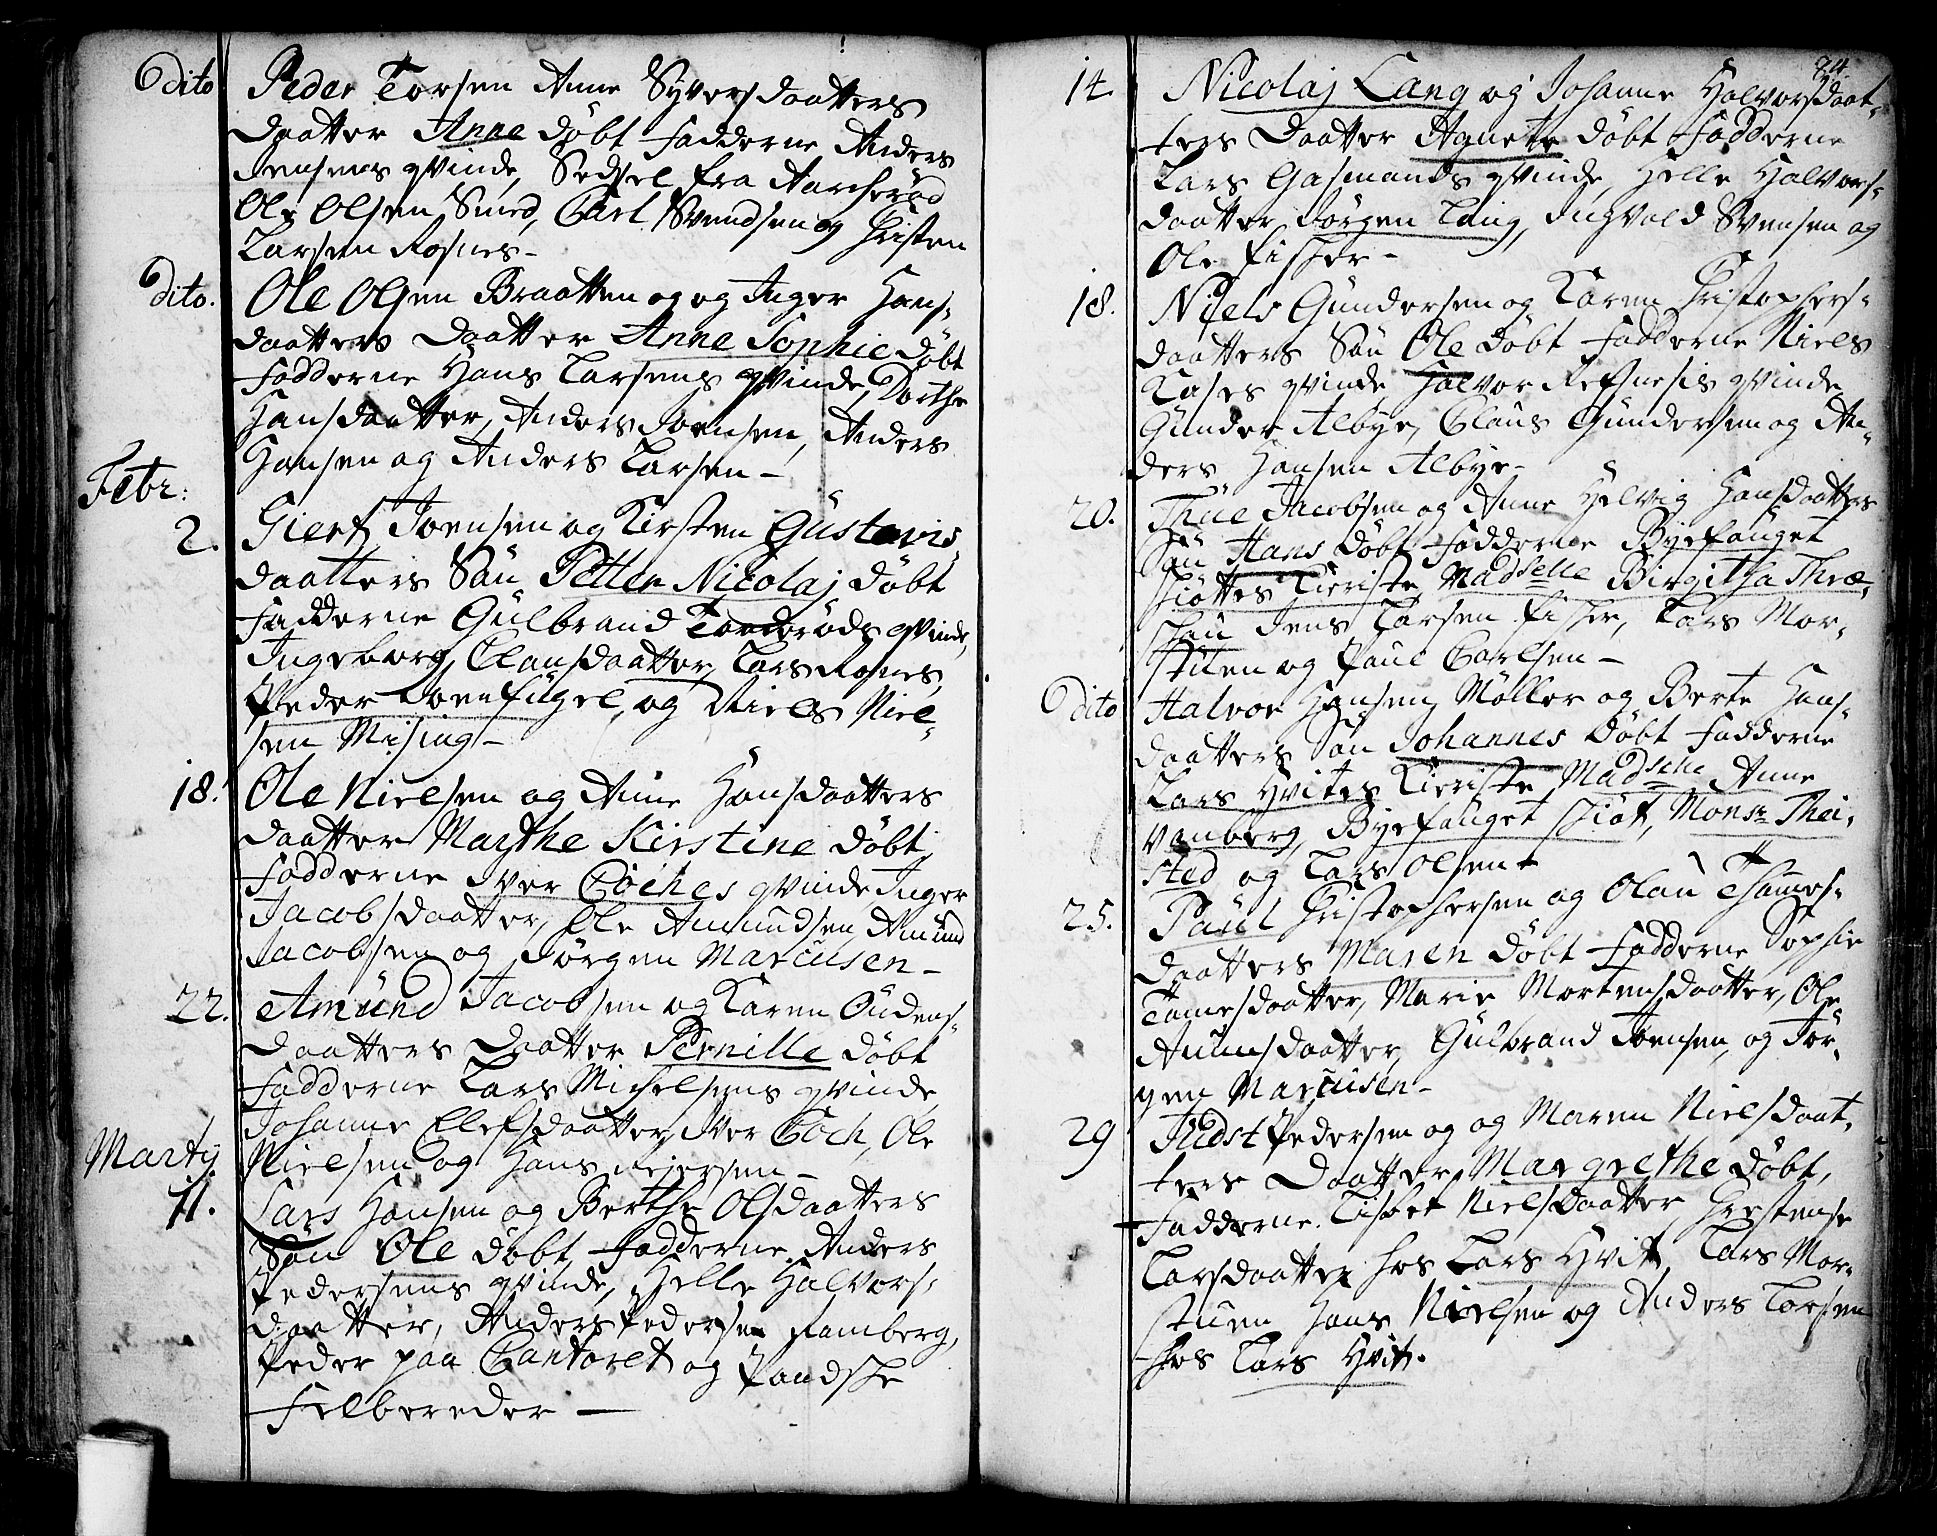 Dito Peder Torsen Anne Syversdaatters
Daatter Anne Døbt Fadderne Anders
Jensens qvinde, Sedsel fra Aarsherød
Ole Olsen Smed, Carl Svendsen og Christen
Larsen Rosnes -
Dito. Ole Olsen Braatten og og Inger Hans-
daatters Daatter Anne Sophie Døbt
Fadderne Hans Larsens qvinde, Dorthe
Hansdaatter, Anders Joensen, Anders
Hansen og Anders Larsen -
Febr:
2. Giert Joensen og Kirsten Gustavis-
daatters Sön Petter Nicolaj Døbt
Fadderne Gulbrand Torderöds qvinde,
Ingeborg Clausdaatter, Lars Rosnes,
Peder Doenfugel, og Niels Niel-
sen Mising -
18. Ole Nielsen og Anne Hansdaatters
Daatter Marthe Kirstine Døbt,
Fadderne Iver Cochs qvinde Inger
Jacobsdaatter, Ole Amundsen, Amund
Jacobsen og Jörgen Marcusen -
22. Amünd Jacobsen og Karen Oudens-
daatters Daatter Pernille Døbt
Fadderne Lars Michelsens qvinde,
Johanne Elefsdaatter, Iver Coch, Ole
Nielsen og Hans Rejersen -
Martij
11. Lars Hansen og Berthe Olsdaatters
Sön Ole Døbt, Fadderne Anders
Pedersens qvinde, Helle Halvors-
daatter, Anders Pedersen Ramberg,
Peder paa Cantoret og Paadske
Felbereder -
14. Nicolaj Lang og Johanne Halvorsdaat-
ters Daatter Agnete Døbt Fadderne
Lars Gasmands qvinde, Helle Halvors-
daatter, Jörgen Lang, Ingvold Svensen og
Ole Fisher -
18. Niels Gundersen og Karen Christophers-
daatters Sön Ole Døbt Fadderne Niels
Kases qvinde, Halvor Refsnesis qvinde
Gunder Albye, Claus Gundersen og An-
ders Hansen Albye -
20. Thue Jacobsen og Anne Helvig Hansdaatters
Sön Hans Døbt Fadderne Byefouget
Skiöttes Kieriste, Madselle Birgitha Thræ-
schou Jens Larsen Fisher, Lars Mor-
stuen og Paul Carlsen -
Dito Halvor Hansen Møller og Berte Hans-
daatters Sön Johannes Døbt Fadderne
Lars Hvites Kieriste Madsche Anne
Vanberg, Byefouget Skiöt, Monsr Thei-
sted og Lars Olsen -
25. Paul Christophersen og Olau Thames-
daatters Maren Døbt Fadderne Sophie
Tamesdaatter, Marie Mortensdaatter, Ole
Aunnsdaatter, Gulbrand Joensen, og Jör-
gen Marcusen -
29 Judst Pedersen og og Maren Nielsdaat-
ters Daatter Margrethe Døbt,
Fadderne. Lisbet Nielsdaatter, Chrestense
Larsdaatter hos Lars Hvit, Lars Mor-
stuen Hans Nielsen og Anders Larsen
hos Lars Hvit.